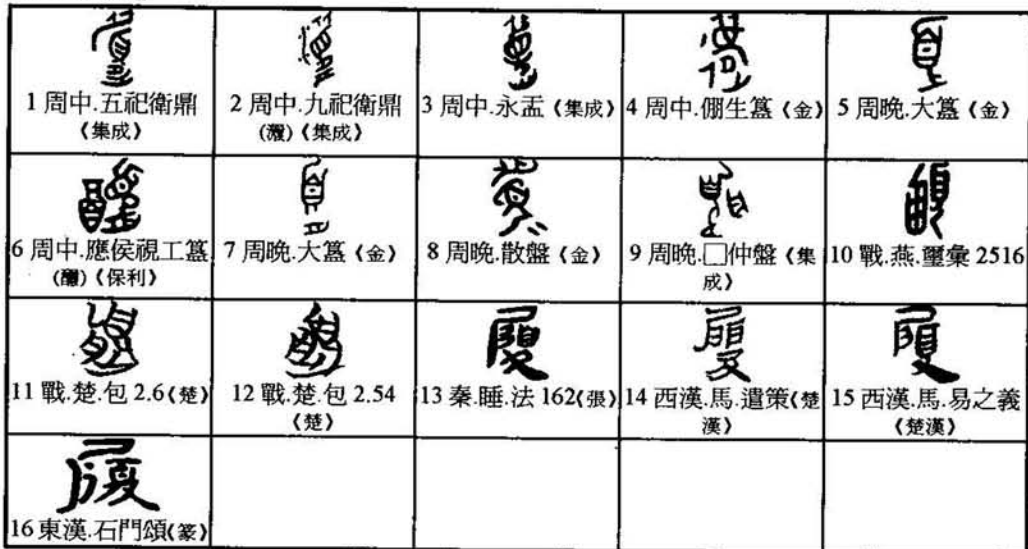 1 周中.五祀衛鼎
《集成》
2 周中.九祀衛鼎
(瀀)《集成》
3 周中.永盂《集成》
4 周中.倗生簋《金》
5 周晚.大簋《金》
6 周中.應侯視工簋
《保利》
7 周晚.大簋《金》
8 周晚.散盤《金》
9 周晚.□仲盤《集
成》
10 戰.燕.璽彙 2516
11 戰.楚.包 2.6《楚》
12 戰.楚.包 2.54
《楚》
13 秦.睡.法 162《張》
14 西漢.馬.遣策《楚
漢》
15 西漢.馬.易之義
《楚漢》
16 東漢.石門頌《篆》